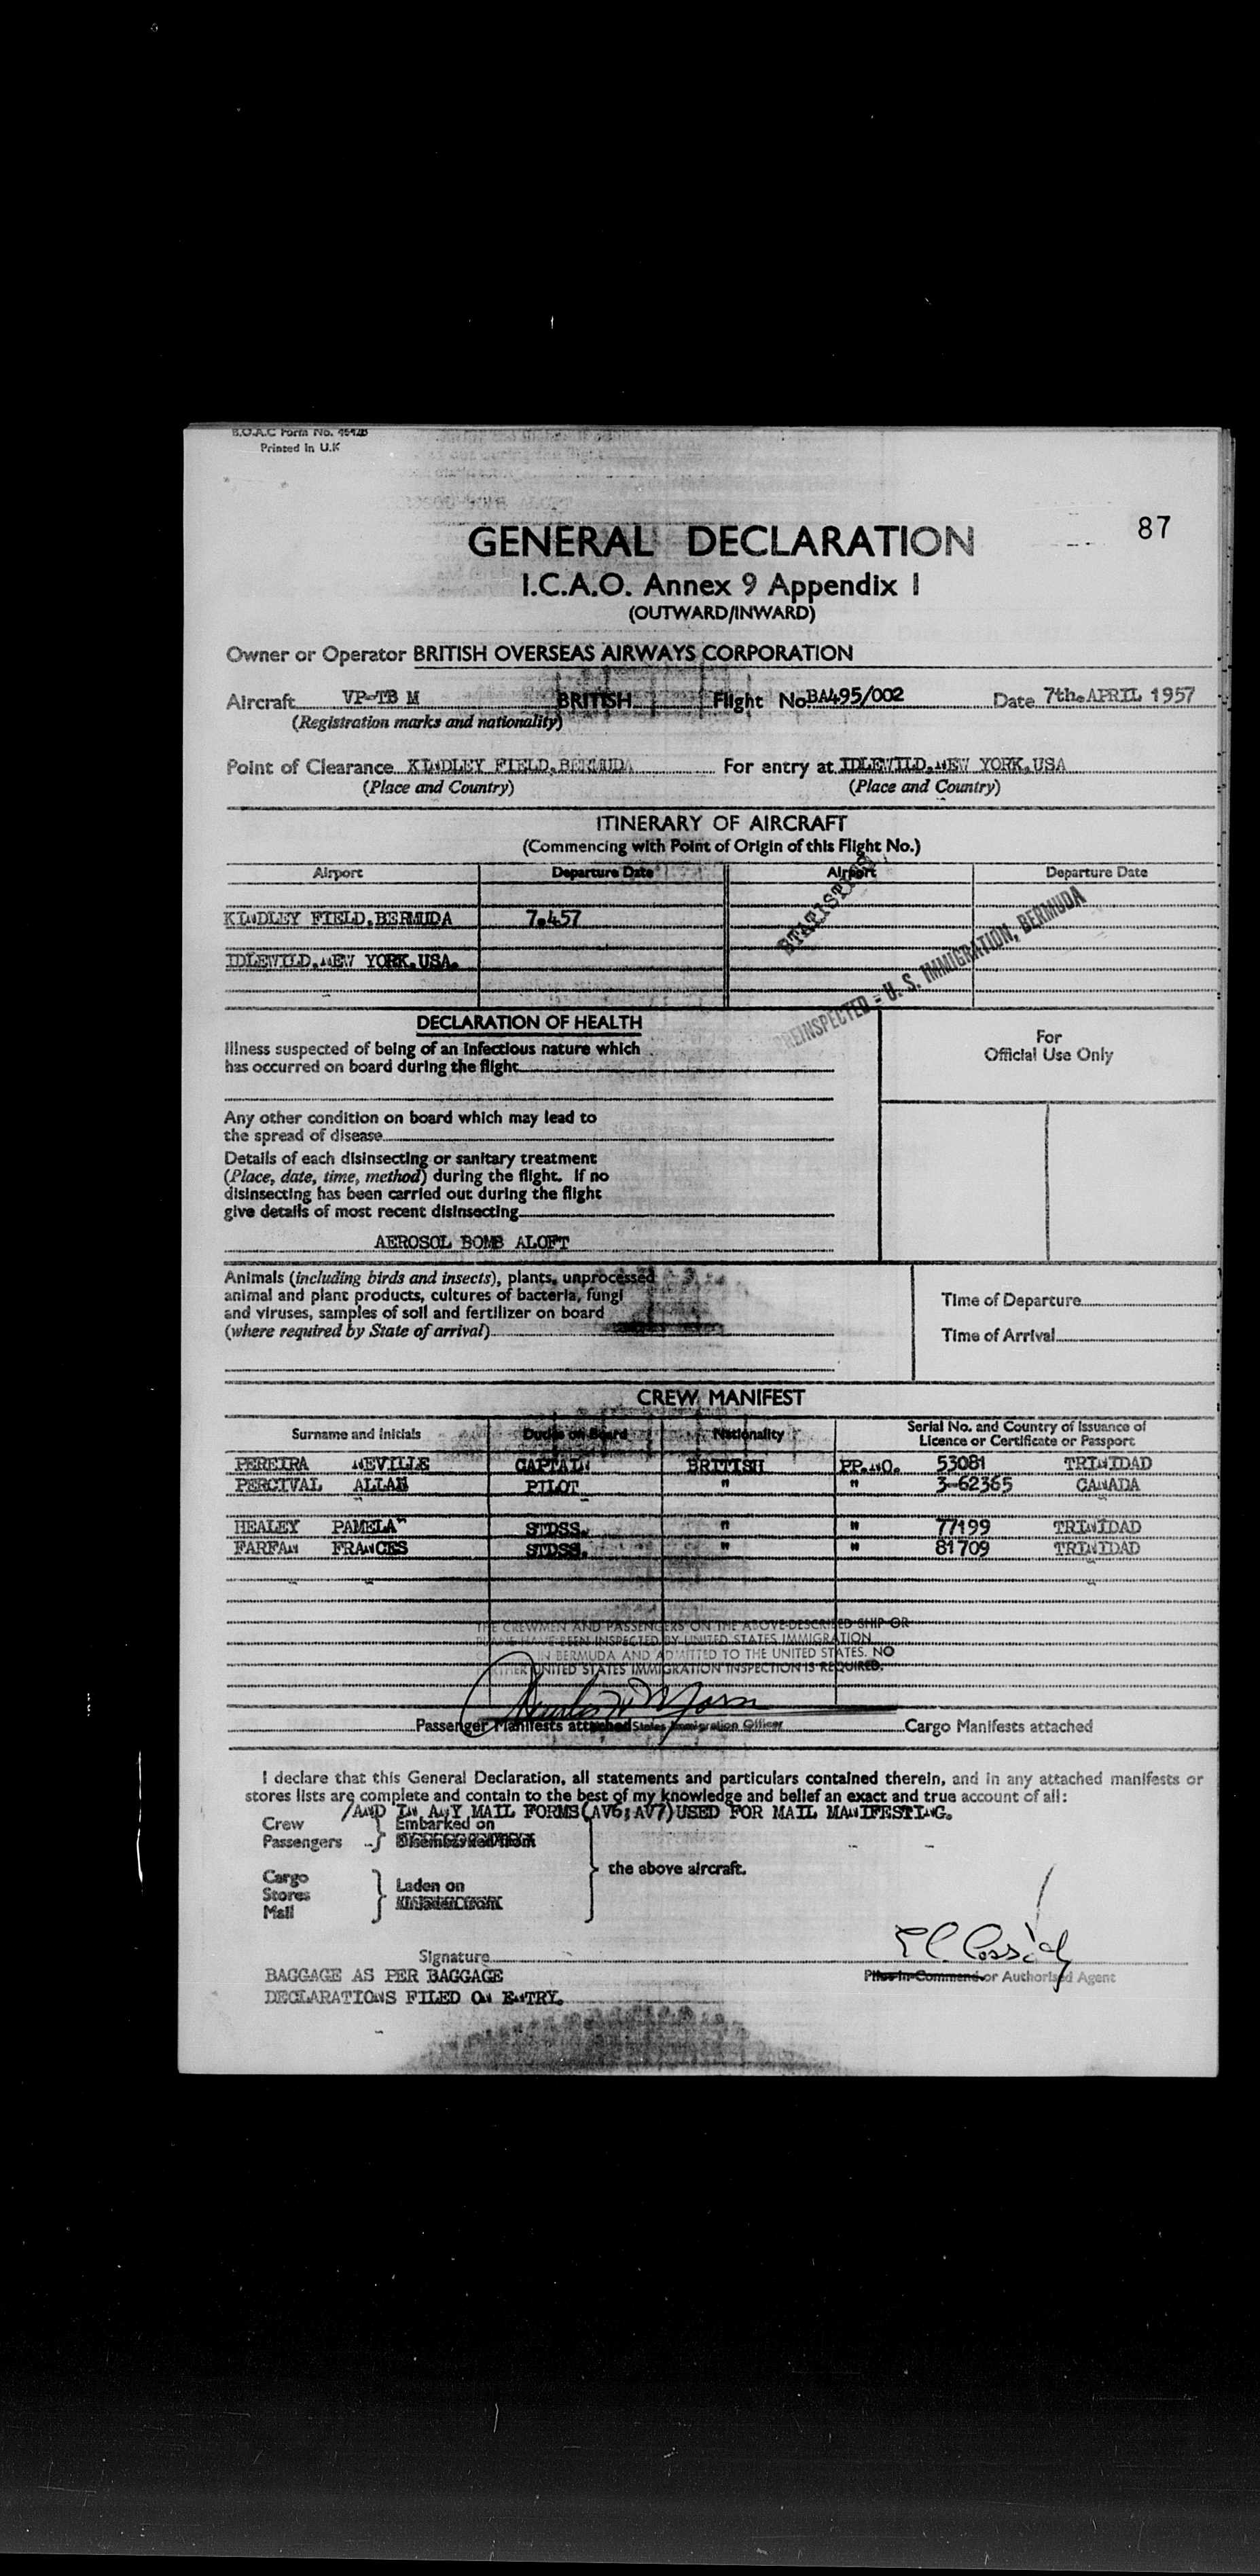 B.O.A.C Form No.
Printed in U.K
87
GENERAL DECLARATION
I.C.A.O. Annex 9 Appendix I
(OUTWARD/INWARD)
Owner or Operator BRITISH OVERSEAS AIRWAYS CORPORATION
Aircraft VP-TB M BRITISH Flight No BA495/002 Date 7th.APRIL 1957
(Registration marks and nationality)
Point of Clearance KINDLEY FIELD,BERMUDA For entry at IDLEWILD,NEW YORK,USA
(Place and Country) (Place and Country)
ITINERARY OF AIRCRAFT
(Commencing with Point of Origin of this Flight No.)
Airport Departure Date Airport Departure Date
KINDLEY FIELD,BERMUDA 7.457
IDLEWILD,NEW YORK,USA.
PREINSPECTED - U. S. IMMIGRATION, BERMUDA
DECLARATION OF HEALTH
Illness suspected of being of an infectious nature which
has occurred on board during the flight
For
Official Use Only
Any other condition on board which may lead to
the spread of disease
Details of each disinsecting or sanitary treatment
(Place, date, time, method) during the flight. If no
disinsecting has been carried out during the flight
give details of most recent disinsecting
AEROSOL BOMB ALOFT
Animals (including birds and insects), plants, unprocessed
animal and plant products, cultures of bacteria, fungi
and viruses, samples of soil and fertilizer on board
(where required by State of arrival)
Time of Departure
Time of Arrival
CREW MANIFEST
Surname and initials Duties on Board Nationality Serial No. and Country of Issuance of
Licence or Certificate or Passport
PEREIRA NEVILLE CAPTAIN BRITISH PP.NO. 53081 TRINIDAD
PERCIVAL ALLAN PILOT " " 3-62365 CANADA
HEALEY PAMELA STDSS. " " 77199 TRINIDAD
FARFAN FRANCES STDSS. " " 81709 TRINIDAD
THE CREWMEN AND PASSENGERS ON THE ABOVE-DESCRIBED SHIP OR
PLANE HAVE BEEN INSPECTED BY UNITED STATES IMMIGRATION
IN BERMUDA AND ADMITTED TO THE UNITED STATES. NO
FURTHER UNITED STATES IMMIGRATION INSPECTION IS REQUIRED.
Passenger Manifests attached States Immigration Officer Cargo Manifests attached
I declare that this General Declaration, all statements and particulars contained therein, and in any attached manifests or
stores lists are complete and contain to the best of my knowledge and belief an exact and true account of all:
/AND IN ANY MAIL FORMS(AV6;AV7)USED FOR MAIL MANIFESTING.
Crew
Passengers
Embarked on
Cargo
Stores
Mail
Laden on
the above aircraft.
Signature
Pilot-in-Command or Authorised Agent
BAGGAGE AS PER BAGGAGE
DECLARATIONS FILED ON ENTRY.